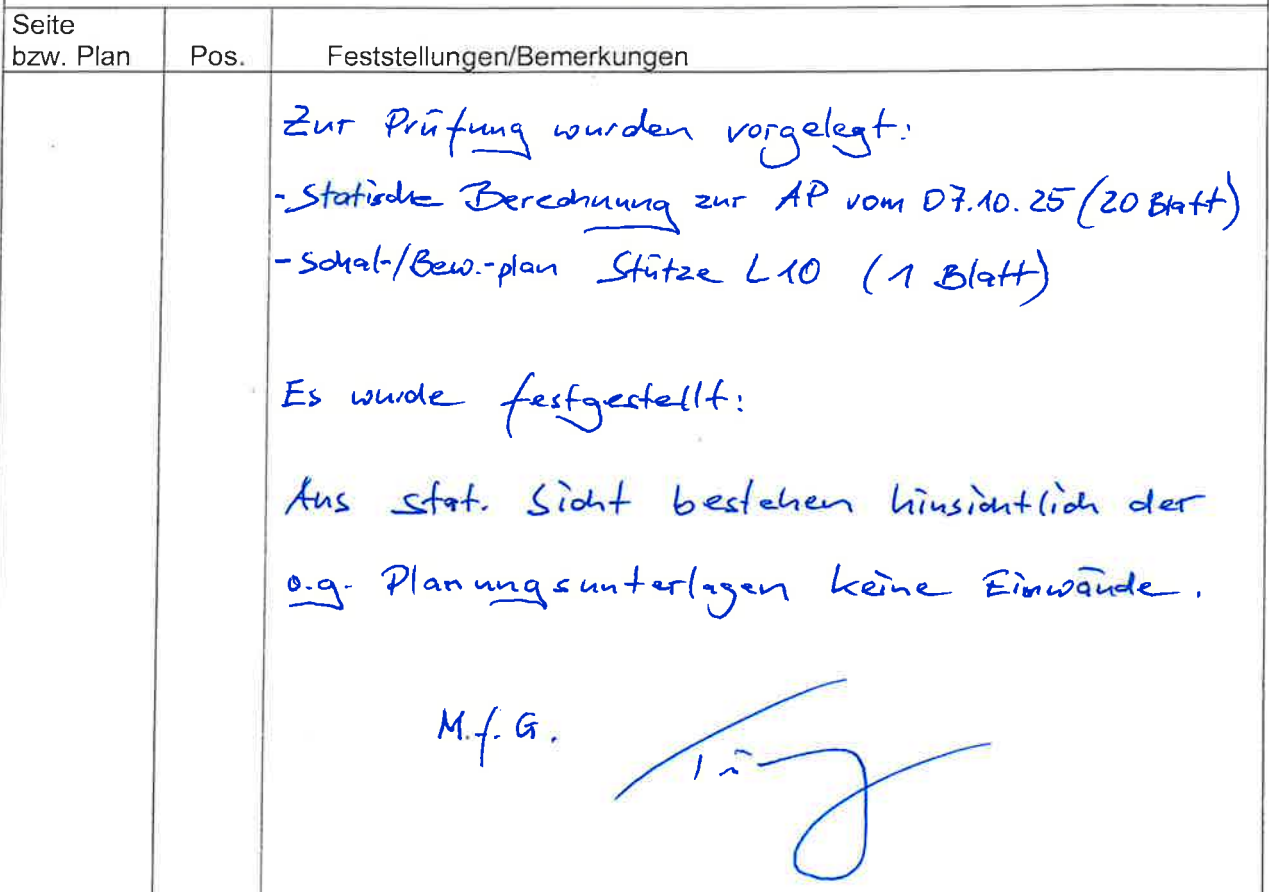 Seite
bzw. Plan Pos. Feststellungen/Bemerkungen
Zur Prüfung wurden vorgelegt:
- Statische Berechnung zur AP vom 07.10.25 (20 Blatt)
- Schal-/Bew.-plan Stütze L10 (1 Blatt)
Es wurde festgestellt:
Aus stat. Sicht bestehen hinsichtlich der
o.g. Planungsunterlagen keine Einwände.
M.f.G.